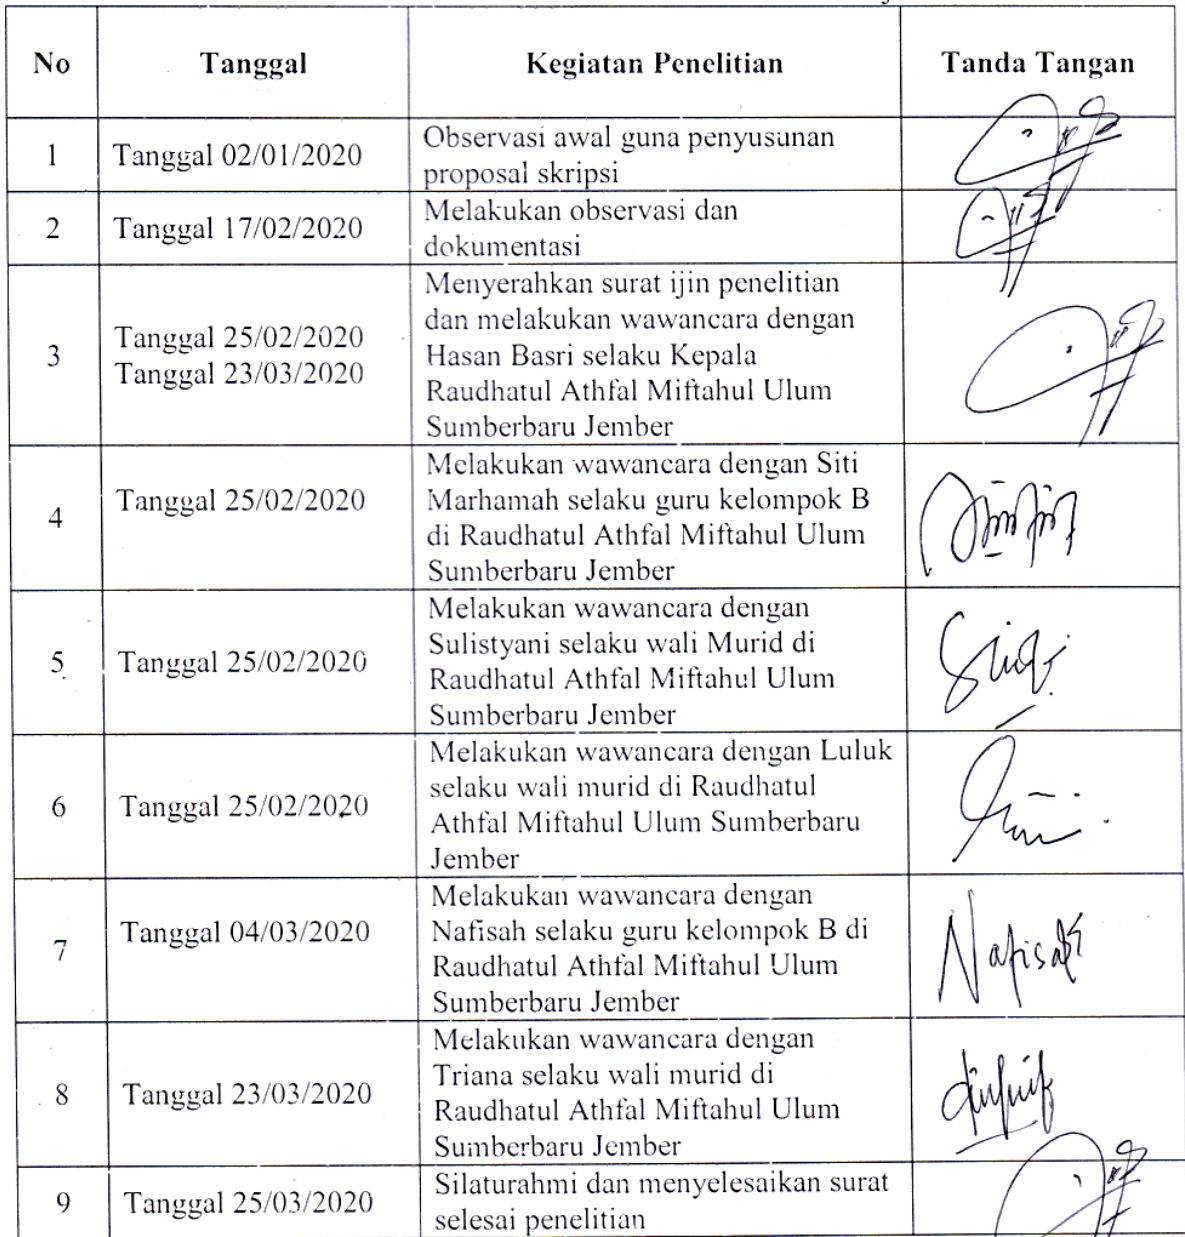 No Tanggal Kegiatan Penelitian Tanda Tangan
1 Tanggal 02/01/2020 Observasi awal guna penyusunan
proposal skripsi
2 Tanggal 17/02/2020 Melakukan observasi dan
dokumentasi
3 Tanggal 25/02/2020
Tanggal 23/03/2020
Menyerahkan surat ijin penelitian
dan melakukan wawancara dengan
Hasan Basri selaku Kepala
Raudhatul Athfal Miftahul Ulum
Sumberbaru Jember
4 Tanggal 25/02/2020 Melakukan wawancara dengan Siti
Marhamah selaku guru kelompok B
di Raudhatul Athfal Miftahul Ulum
Sumberbaru Jember
5 Tanggal 25/02/2020 Melakukan wawancara dengan
Sulistyani selaku wali Murid di
Raudhatul Athfal Miftahul Ulum
Sumberbaru Jember
6 Tanggal 25/02/2020 Melakukan wawancara dengan Luluk
selaku wali murid di Raudhatul
Athfal Miftahul Ulum Sumberbaru
Jember
7 Tanggal 04/03/2020 Melakukan wawancara dengan
Nafisah selaku guru kelompok B di
Raudhatul Athfal Miftahul Ulum
Sumberbaru Jember
Nafisah
8 Tanggal 23/03/2020 Melakukan wawancara dengan
Triana selaku wali murid di
Raudhatul Athfal Miftahul Ulum
Sumberbaru Jember
9 Tanggal 25/03/2020 Silaturahmi dan menyelesaikan surat
selesai penelitian